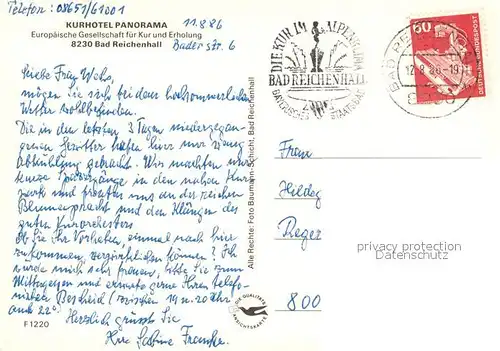 Telefon: 08651/61001
11.8.86
KURHOTEL PANORAMA
Europäische Gesellschaft für Kur und Erholung
8230 Bad Reichenhall
Bader str. 6
Liebe Frau
mögen Sie sich bei dem hochsommerlichen
Wetter wohlbefinden.
Die in den letzten 3 Tagen niedergegan-
genen Gewitter haben hier nur wenig
Abkühlung gebracht. Wir machten
Spaziergänge in den nahen Kur-
park und an der reichen
Blumenpracht und den Klängen des
guten Kurorchesters
Ob Sie Ihr Vorhaben, einmal nach hier
zu kommen, verwirklichen können? Ich
würde mich sehr freuen, bitte Sie zum
Mittagessen und erwarte gerne Ihren telefo-
nischen Bescheid (zwischen 19 u. 20 Uhr
Herzlich grüsst Sie
Ihre Sabine
F 1220
Alle Rechte: Foto Baumann-Schicht, Bad Reichenhall
DIE QUALITÄTS
ANSICHTSKARTE
DIE KUR IM ALPENKLIMA
BAD REICHENHALL
BAYERISCHES STAATSBAD
BAD REI
12.8.86-19
60
DEUTSCHE BUNDESPOST
Frau
Hildeg
Reger
800
privacy protection
Datenschutz